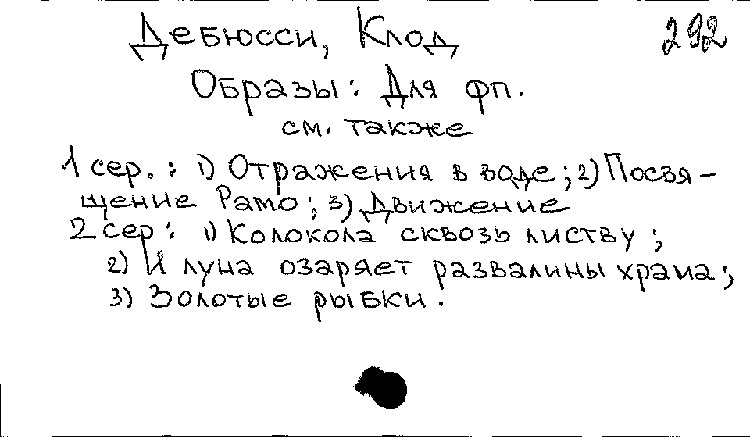 Дебюсси, Клод 292
Образы: Для фп.
см. также
1 сер.: 1) Отражения в воде; 2) Посвя-
щение Рамо; 3) Движение
2 сер: 1) Колокола сквозь листву;
2) И луна озаряет развалины храма;
3) Золотые рыбки.